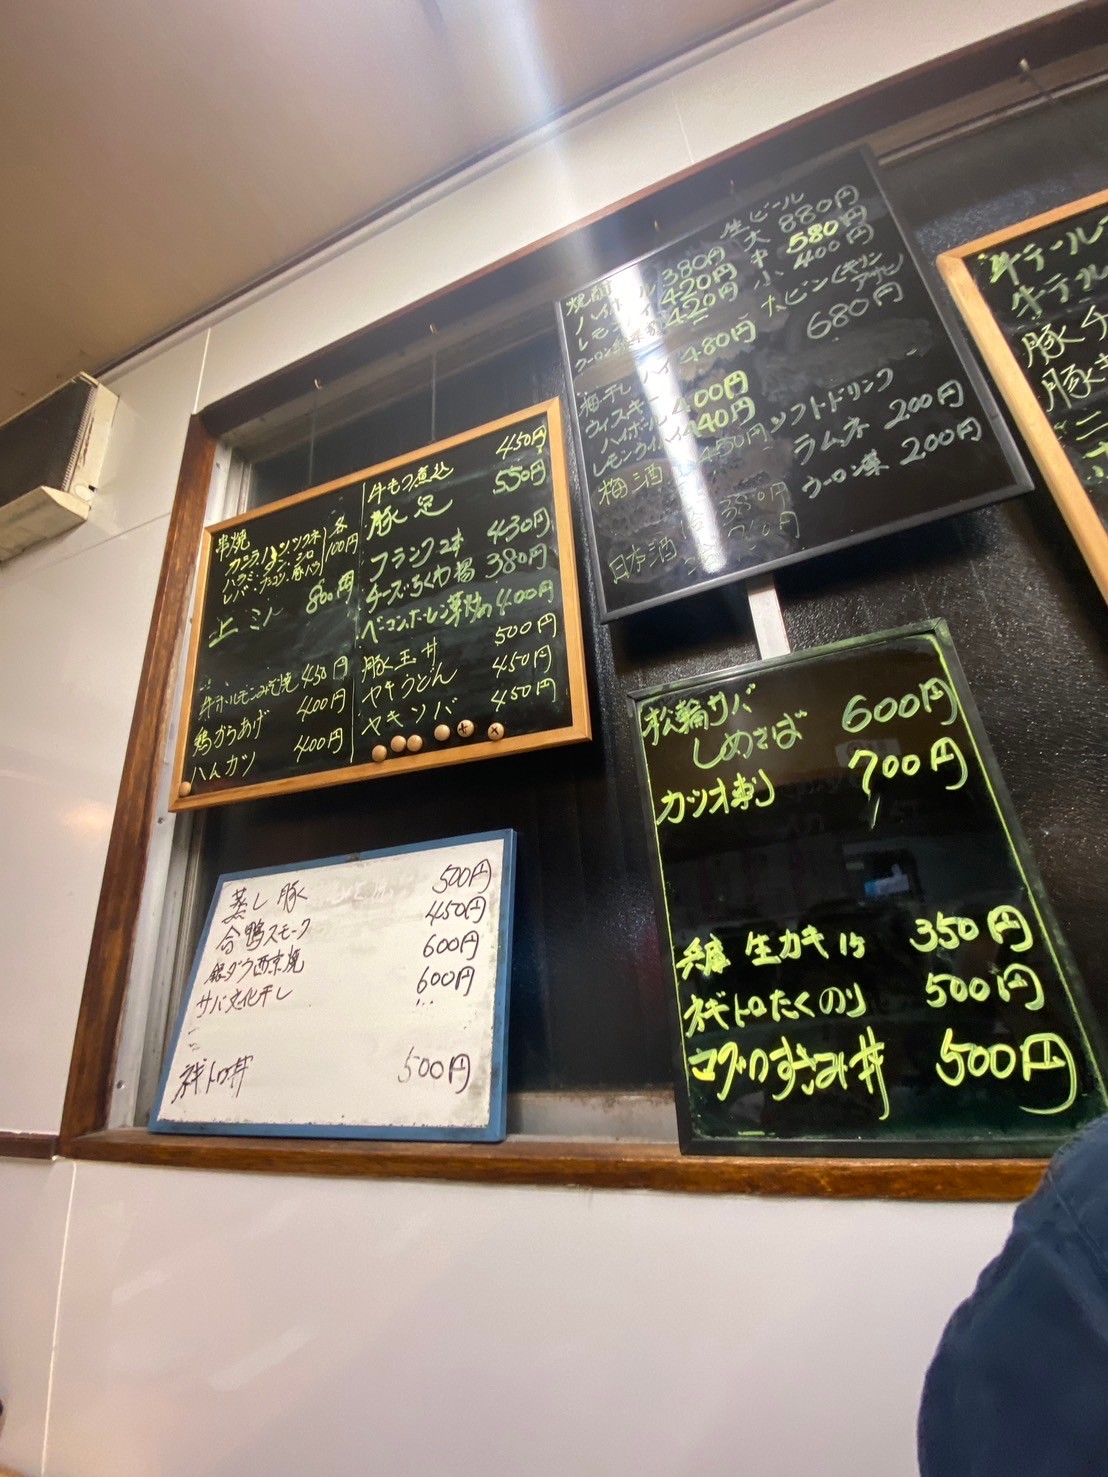 串焼
カシラ ツクネ 各
ハラミ タン シロ 100円
レバー
上ミノ 800円
牛ホルモンみそ焼 450円
鶏からあげ 400円
ハムカツ 400円
牛もつ煮込 450円
豚足 550円
フランク2本 430円
チーズちくわ揚 380円
400円
豚玉丼 500円
ヤキうどん 450円
ヤキソバ 450円
焼酎
ハイボール 380円
レモン 420円
ウーロン 420円
梅干しハイ 480円
ウィスキー
ハイボール 400円
レモンハイ 440円
梅酒 450円
日本酒
生ビール
大 880円
中 580円
小 400円
大ビン(キリン
アサヒ)
680円
ソフトドリンク
ラムネ 200円
ウーロン茶 200円
牛テール
牛テール
豚
豚
松輪サバ
しめさば 600円
カツオ刺 700円
兵庫 生カキ1ケ 350円
ネギトロたくのり 500円
マグロすきみ丼 500円
蒸し豚 500円
合鴨スモーク 450円
銀ダラ西京焼 600円
サバ文化干し 600円
ネギトロ丼 500円